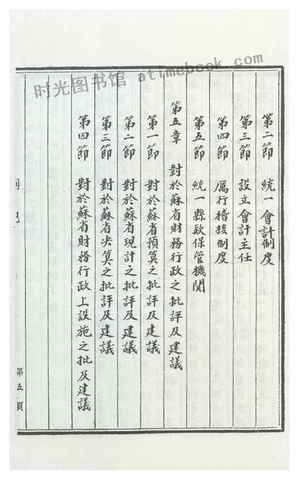 时光图书馆 atimebook.com
第二節 統一會計制度
第三節 設立會計主任
第四節 厲行稽核制度
第五節 統一縣欵保管機関
第五章 對於蘇省財務行政之批評及建議
第一節 對於蘇省預算之批評及建議
第二節 對於蘇省現計之批評及建議
第三節 對於蘇省决算之批評及建議
第四節 對於蘇省財務行政上設施之批及建議
目
第五頁